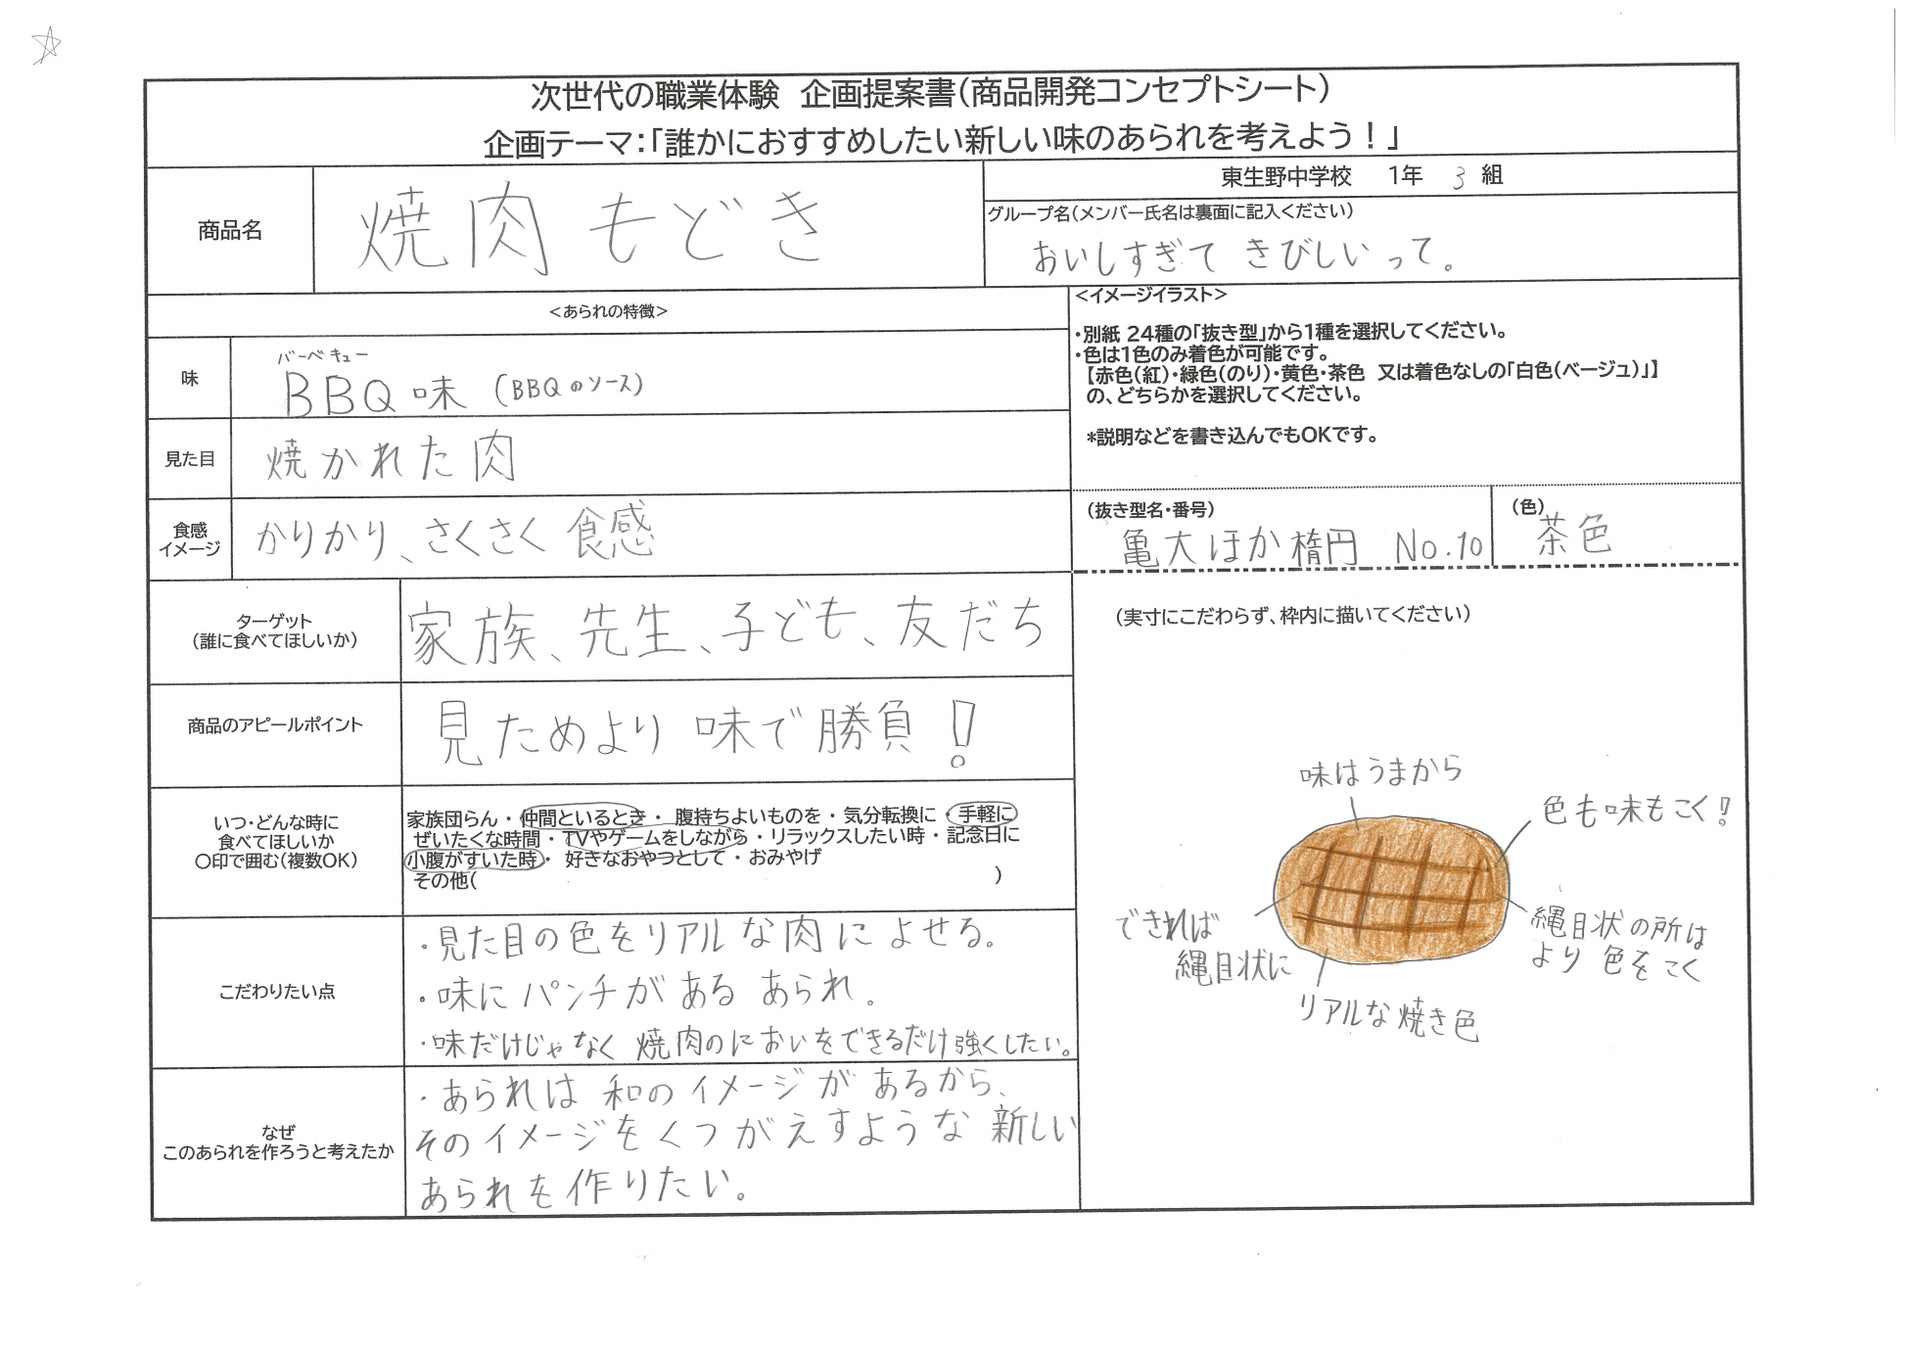 次世代の職業体験　企画提案書(商品開発コンセプトシート)
企画テーマ:「誰かにおすすめしたい新しい味のあられを考えよう！」
商品名
焼肉もどき
東生野中学校　1年　3組
グループ名(メンバー氏名は裏面に記入ください)
おいしすぎて きびしいって。
<あられの特徴>
味
バーベキュー
BBQ味 (BBQのソース)
見た目
焼かれた肉
食感
イメージ
かりかり、さくさく食感
ターゲット
(誰に食べてほしいか)
家族、先生、子ども、友だち
商品のアピールポイント
見ためより味で勝負！
いつ・どんな時に
食べてほしいか
○印で囲む(複数OK)
家族団らん・仲間といるとき・腹持ちよいものを・気分転換に・手軽に
ぜいたくな時間・TVやゲームをしながら・リラックスしたい時・記念日に
小腹がすいた時・好きなおやつとして・おみやげ
その他(　)
こだわりたい点
・見た目の色をリアルな肉によせる。
・味にパンチがあるあられ。
・味だけじゃなく焼肉のにおいをできるだけ強くしたい。
なぜ
このあられを作ろうと考えたか
・あられは和のイメージがあるから、
そのイメージをくつがえすような新しい
あられを作りたい。
<イメージイラスト>
・別紙 24種の「抜き型」から1種を選択してください。
・色は1色のみ着色が可能です。
【赤色(紅)・緑色(のり)・黄色・茶色　又は着色なしの「白色(ベージュ)」】
の、どちらかを選択してください。
*説明などを書き込んでもOKです。
(抜き型名・番号)
亀大ほか楕円 No.10
(色)
茶色
(実寸にこだわらず、枠内に描いてください)
味はうまから
色も味もこく！
できれば
縄目状に
縄目状の所は
より色をこく
リアルな焼き色